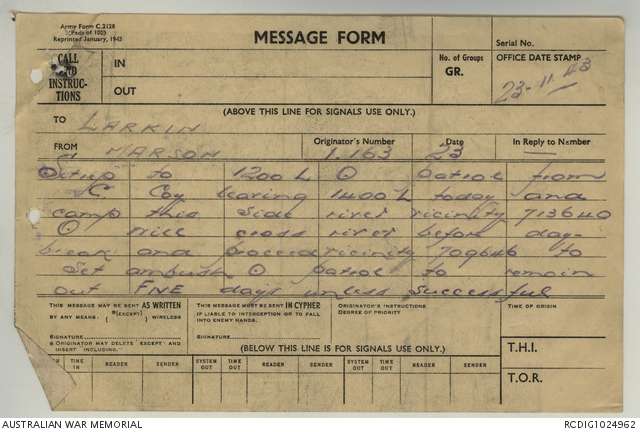 Army Form C.2128
(Pads of 100)
Reprinted January, 1943
MESSAGE FORM
Serial No.
CALL
AND
INSTRUC-
TIONS
IN
OUT
No. of Groups
GR.
OFFICE DATE STAMP
23-11-43
(ABOVE THIS LINE FOR SIGNALS USE ONLY.)
TO LARKIN
FROM MARSON
Originator's Number 1.163
Date 23
In Reply to Number —
Sitrep to 1200 L ⊙ patrol from
C Coy leaving 1400 L today and
camp this side river vicinity 713640
⊙ will cross river before day-
break and proceed vicinity 709646 to
set ambush ⊙ patrol to remain
out FNE days unless successful
THIS MESSAGE MAY BE SENT AS WRITTEN
BY ANY MEANS. *(EXCEPT) WIRELESS
SIGNATURE
& ORIGINATOR MAY DELETE EXCEPT AND
INSERT INCLUDING.
THIS MESSAGE MUST BE SENT IN CYPHER
IF LIABLE TO INTERCEPTION OR TO FALL
INTO ENEMY HANDS.
SIGNATURE
ORIGINATOR'S INSTRUCTIONS
DEGREE OF PRIORITY
TIME OF ORIGIN
(BELOW THIS LINE IS FOR SIGNALS USE ONLY.)
T.H.I.
T.O.R.
TIME IN READER SENDER SYSTEM OUT TIME OUT READER SENDER SYSTEM OUT TIME OUT READER SENDER
AUSTRALIAN WAR MEMORIAL
RCDIG1024962